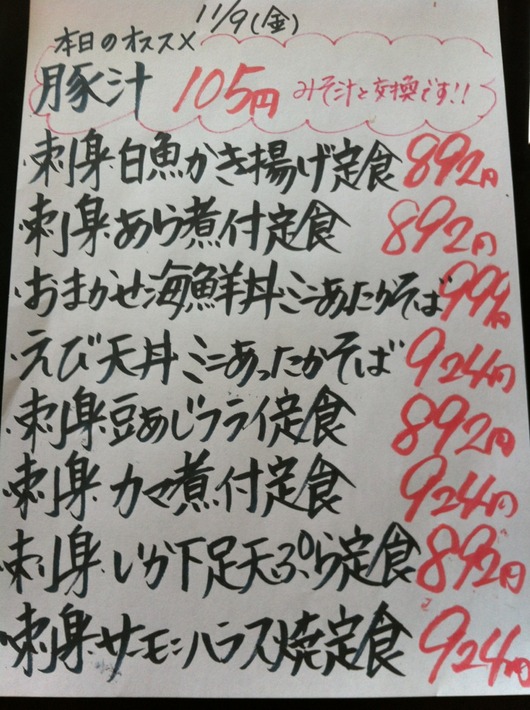 11/9(金)
本日のオススメ
豚汁 105円 みそ汁と交換です!!
・刺身・白魚かき揚げ定食 892円
・刺身・あら煮付定食 892円
・おまかせ海鮮丼ミニあたかそば 999円
・えび天丼ミニあったかそば 924円
・刺身・豆あじフライ定食 892円
・刺身・カマ煮付定食 924円
・刺身・いか下足天ぷら定食 892円
・刺身・サーモンハラス焼定食 924円